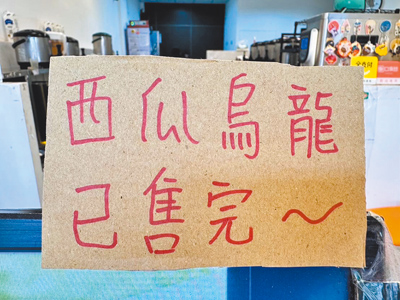 西瓜烏龍
已售完~